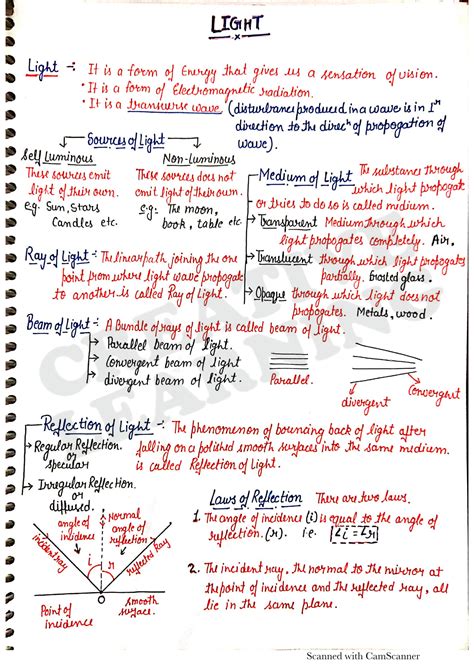 LIGHT
Light -: It is a form of Energy that gives us a sensation of vision.
• It is a form of Electromagnetic radiation.
• It is a transverse wave (disturbance produced in a wave is in ⊥r
direction to the direcn of propagation of
wave).
Sources of Light
Self Luminous
These sources emit
light of their own.
e.g. Sun, Stars
Candles etc.
Non-Luminous
These sources does not
emit light of their own.
e.g:- The moon,
book, table etc
Medium of Light The substance through
which light propagat
or tries to do so is called medium.
Transparent Medium through which
light propagates completely. Air,
Translucent through which light propagates
partially, frosted glass.
Opaque through which light does not
propagates. Metals, wood.
Ray of Light -: The linear path joining the one
point from where light wave propagate
to another is called Ray of Light.
Beam of Light -: A Bundle of rays of light is called beam of light.
Parallel beam of Light
Convergent beam of Light
divergent beam of Light
Parallel.
divergent
Convergent
Reflection of Light -: The phenomenon of bouncing back of light after
falling on a polished smooth
surfaces into the same medium.
is called Reflection of Light.
Regular Reflection.
or
Specular
Irregular Reflection.
or
diffused.
angle of
incidence
Normal
angle of
reflection
incident ray
i
r
reflected Ray
O
Point of
incidence
smooth
surface.
Laws of Reflection There are two laws.
1. The angle of incidence (i) is equal to the angle of
reflection. (r). i.e. ∠i = ∠r
2. The incident ray, the normal to the mirror at
the point of incidence and the reflected ray, all
lie in the same plane.
CAPACITY
LEARNING
Scanned with CamScanner